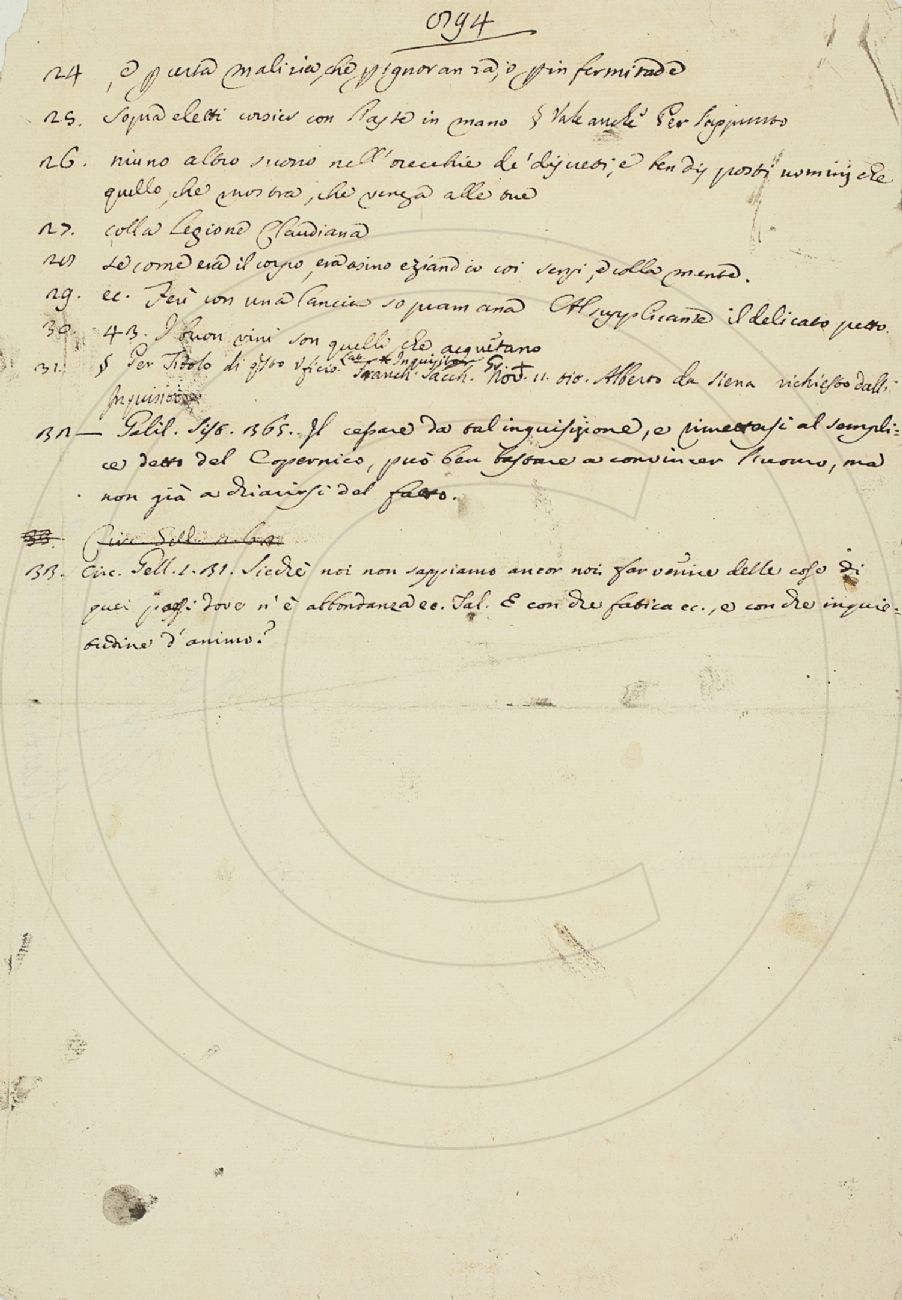 294
24 , e p certa malizia, che p ignoranzia, o p infermitade
25. sopra eletti corsier con l'aste in mano § Vale anche Per l'appunto
26. niuno altro suono nell' orecchie de' discreti, e ben disposti uomini che
quello, che mostra, che venga alle tue
27. colla legione Claudiana
28 se come era il corpo, era asino eziandio coi sensi, e colla mente.
29. ec. Ferì con una lancia soprammana Al supplicante il delicato petto.
30. 43. I buon vini son quelli che acquetano
31. § Per Titolo di qsto Uficio. Lat. Inquisitor Gr.
Franch. Sacch. Nov. 11. Alberto da Siena richiesto dall'
Inquisitore
32 — Galil. Sist. 365. Il cessare da tal inquisizione, e rimettersi al sempli-
ce detto del Copernico, può ben bastare a convincer l'uomo, ma
non già a chiarirsi del fatto.
33.
33. Circ. Gell. 1. 31. Sicchè noi non sappiamo ancor noi far venire delle cose di
quei paesi dove n'è abbondanza ec. Sal. E con che fatica ec., e con che inquie-
tudine d'animo?